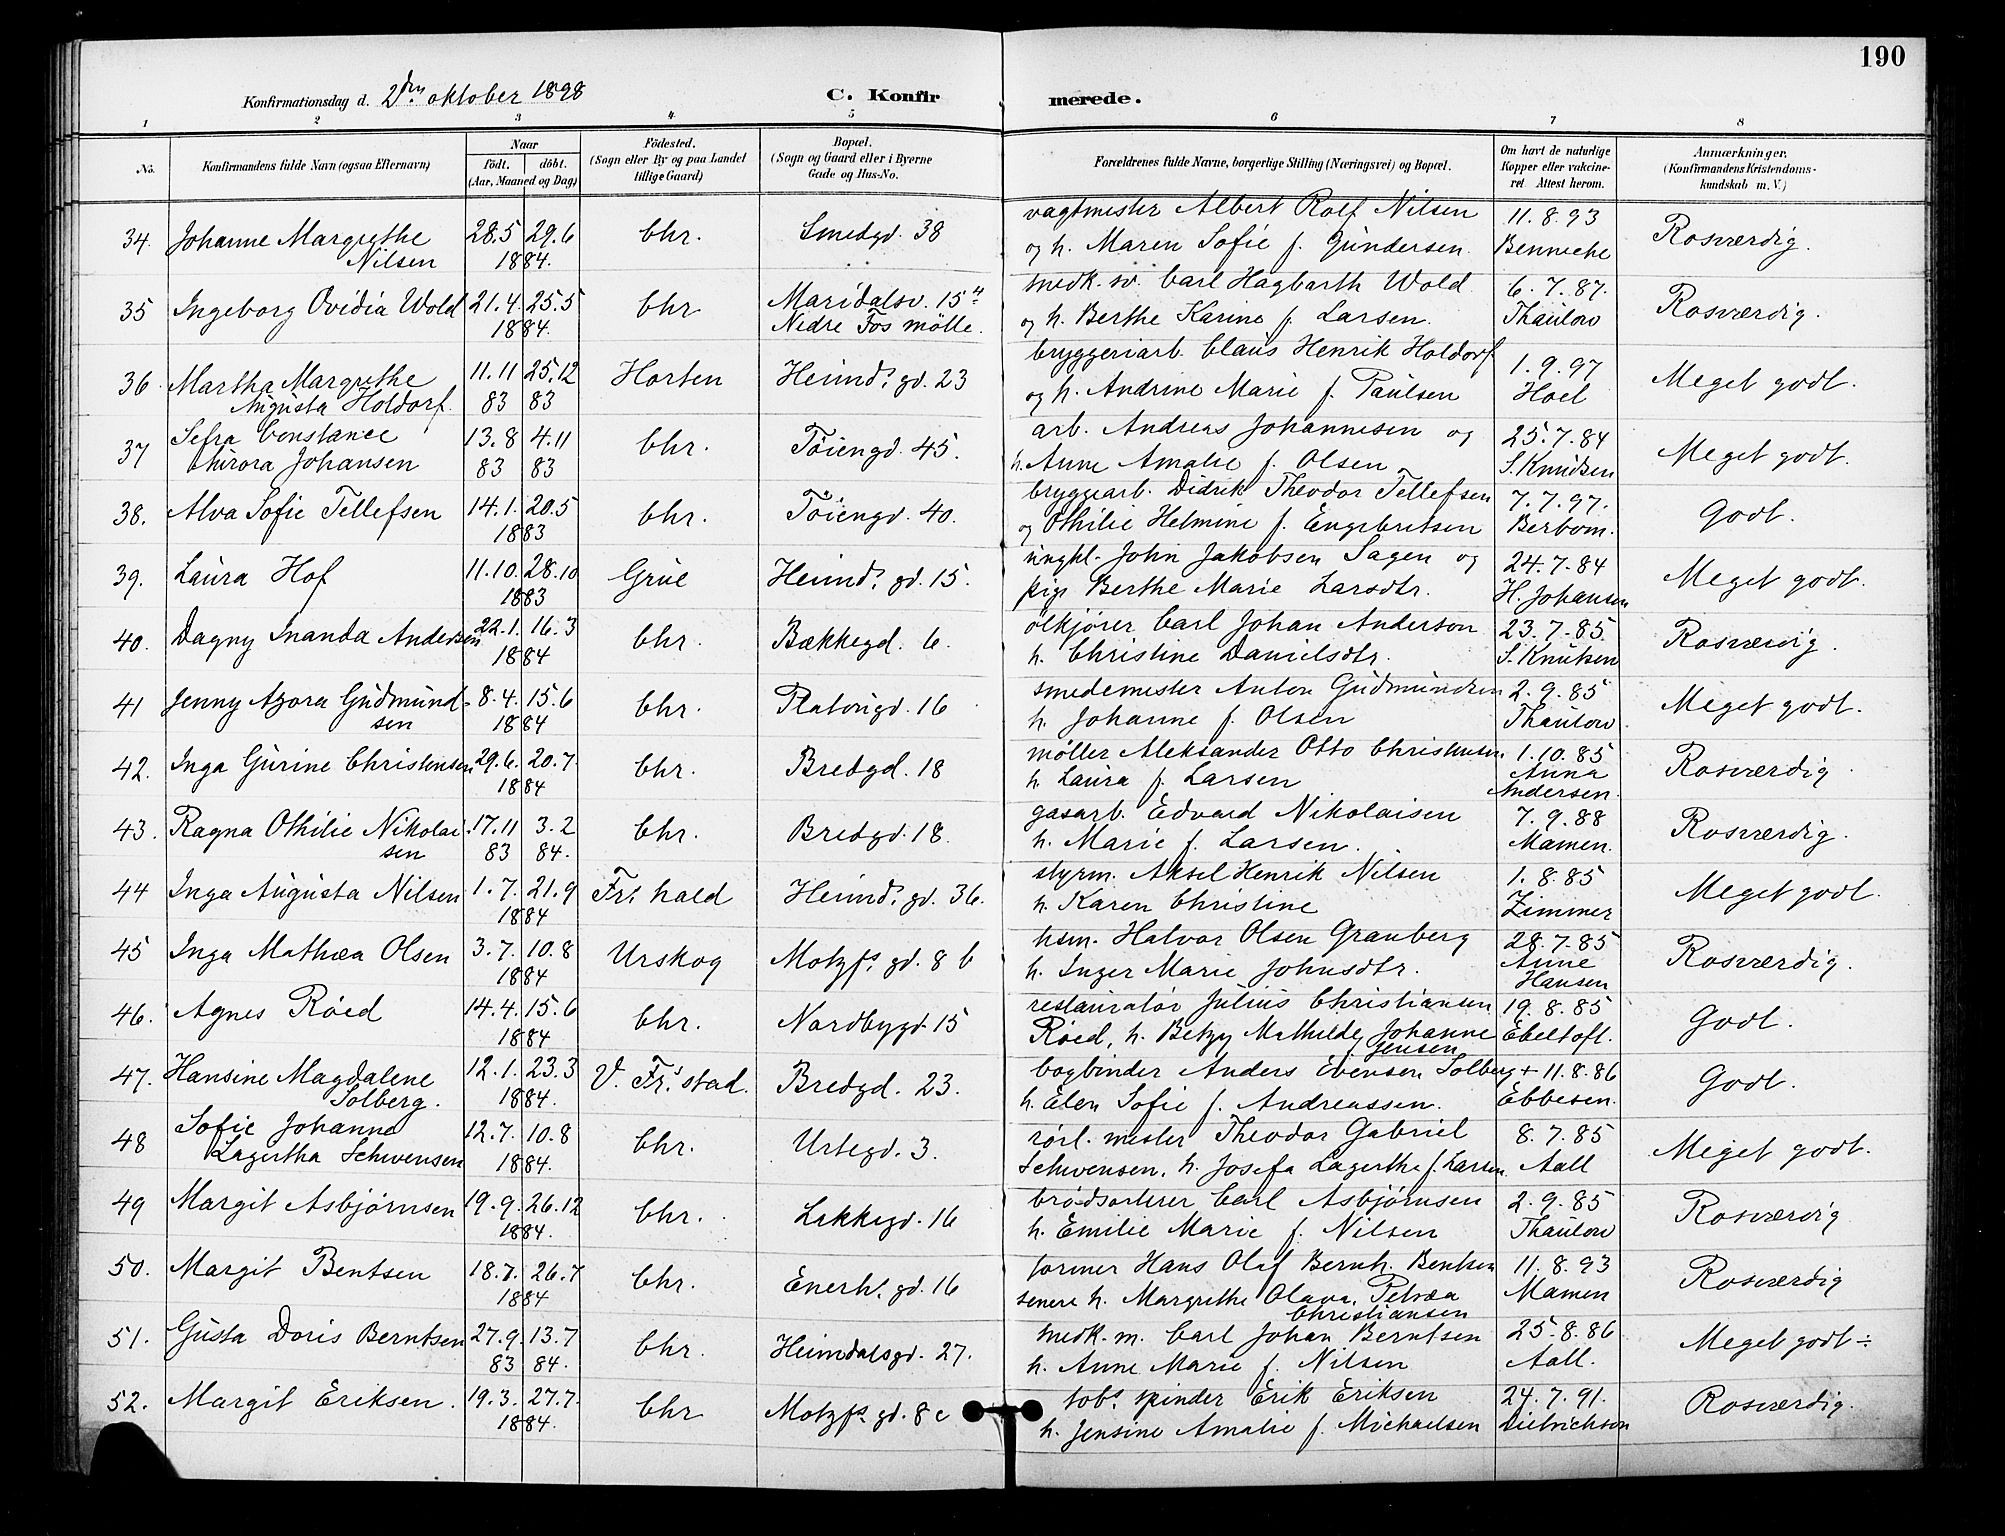 190
Konfirmationsdag d. 2den oktober 1898 C. Konfirmerede.
1 2 3 4 5 6 7 8
No. Konfirmandens fulde Navn (ogsaa Efternavn) Naar født. døbt. (Aar, Maaned og Dag) Födested. (Sogn eller By og paa Landet tillige Gaard) Bopæl. (Sogn og Gaard eller i Byerne Gade og Hus-No. Forældrenes fulde Navne, borgerlige Stilling (Næringsvei) og Bopæl. Om havt de naturlige Kopper eller vakcineret. Attest herom. Anmærkninger. (Konfirmandens Kristendomskundskab m. V.)
34. Johanne Margrethe 28.5 29.6 Chr. Smedgd. 38 vagtmester Albert Rolf Nilsen 11.8.93 Rosværdig.
Nilsen 1884. og h. Maren Sofie f. Gundersen. Benneche
35 Ingeborg Ovidia Wold 21.4. 25.5 Chr Maridalsv. 15 medk. sv. Carl Hagbarth Wold 6.7.87. Rosværdig.
1884. Nedre Fos mölle. og h. Berthe Karine f. Larsen. Thaulow
36. Martha Margrethe 11.11 25.12 Horten Heimd. gd. 23 bryggeriarb. Claus Henrik Holdorf 1.9.97 Meget godt.
Augusta Holdorf. 83 83 og h. Andrine Marie f. Paulsen Hoel
37 Sefra Constance 13.8 4.11 Chr. Töiengd. 45. arb. Andreas Johannesen og 25.7.84 Meget godt.
Aurora Johansen 83 83 h. Anne Amalie f. Olsen S. Knudsen
38. Alva Sofie Tellefsen 14.1. 20.5 Chr. Töiengd. 40. bryggearb. Didrik Theodor Tellefsen 7.7.97. Godt.
1883 og Othilie Helmine f. Engebretsen Berbom.
39. Laura Hof 11.10. 28.10 Grue Heimd. gd. 15. ungkl. John Jakobsen Sagen og 24.7.84 Meget godt.
1883 pige Berthe Marie Larsdtr. H. Johansen
40. Dagny Inanda Andersen 22.1. 16.3 Chr. Bækkegd. 6. ölkjörer Carl Johan Anderson 23.7.85. Rosværdig.
1884 h. Christine Danielsdtr. S. Knutsen
41 Jenny Azora Gudmund- 8.4. 15.6 Chr. Platougd. 16 smedemester Anton Gudmundsen 2.9.85 Meget godt.
sen 1884 h. Johanne f. Olsen Thaulow.
42. Inga Gurine Christensen 29.6. 20.7. Chr. Bredgd. 18 möller Aleksander Otto Christensen 1.10.85 Rosværdig.
1884 h. Laura f. Larsen Anna Andersen.
43. Ragna Othilie Nikolai- 17.11 3.2 Chr. Bredgd. 18. gasarb. Edvard Nikolaisen 7.9.88 Rosværdig.
sen 83 84. h. Marie f. Larsen. Mamen.
44 Inga Augusta Nilsen 1.7. 21.9 Fr. hald Heimd. gd. 36. styrm. Aksel Henrik Nilsen 1.8.85 Meget godt.
1884 h. Karen Christine Zimmer
45 Inga Mathæa Olsen 3.7. 10.8 Urskog Motzf. gd. 8 b hsm. Halvor Olsen Granberg 28.7.85 Rosværdig.
1884 h. Inger Marie Johnsdtr. Anne Hansen
46. Agnes Röed 14.4. 15.6 Chr. Nordbygd. 15 restauratör Julius Christiansen 19.8.85 Godt.
1884 Röed, h. Betzy Mathilde Johanne Jensen Ebeltoft.
47. Hansine Magdalene 12.1. 23.3 V. Fr. stad. Bredgd. 23. bogbinder Anders Evensen Solberg + 11.8.86 Godt.
Solberg. 1884. h. Elen Sofie f. Andreassen. Ebbesen.
48 Sofie Johanne 12.7. 10.8 Chr. Urtegd. 3. rörl. mester Theodor Gabriel 8.7.85 Meget godt.
Lagertha Schwensen 1884. Schwensen, h. Josefa Lagerthe f. Larsen Aall
49 Margit Asbjørnsen 19.9. 26.12 Chr. Lakkegd. 16 brödsorterer Carl Asbjørnsen 2.9.85 Rosværdig
1884. h. Emilie Marie f. Nilsen Thaulow
50. Margit Bentsen 18.7. 26.7 Chr. Enerh. gd. 16 former Hans Olaf Bernh. Bentsen 11.8.93 Rosværdig
1884 senere h. Margrethe Olava Petræa Christiansen Mamen
51. Gusta Doris Berntsen 27.9. 13.7 Chr. Heimdalsgd. 27. medk. m. Carl Johan Berntsen 25.8.86 Meget godt ÷
83 84. h. Anne Marie f. Nilsen Aall.
52. Margit Eriksen. 19.3. 27.7. Chr Motzfs gd. 8 c tobs spinder Erik Eriksen 24.7.91. Rosværdig.
1884. h. Jensine Amalie f. Michaelsen Dietrichson